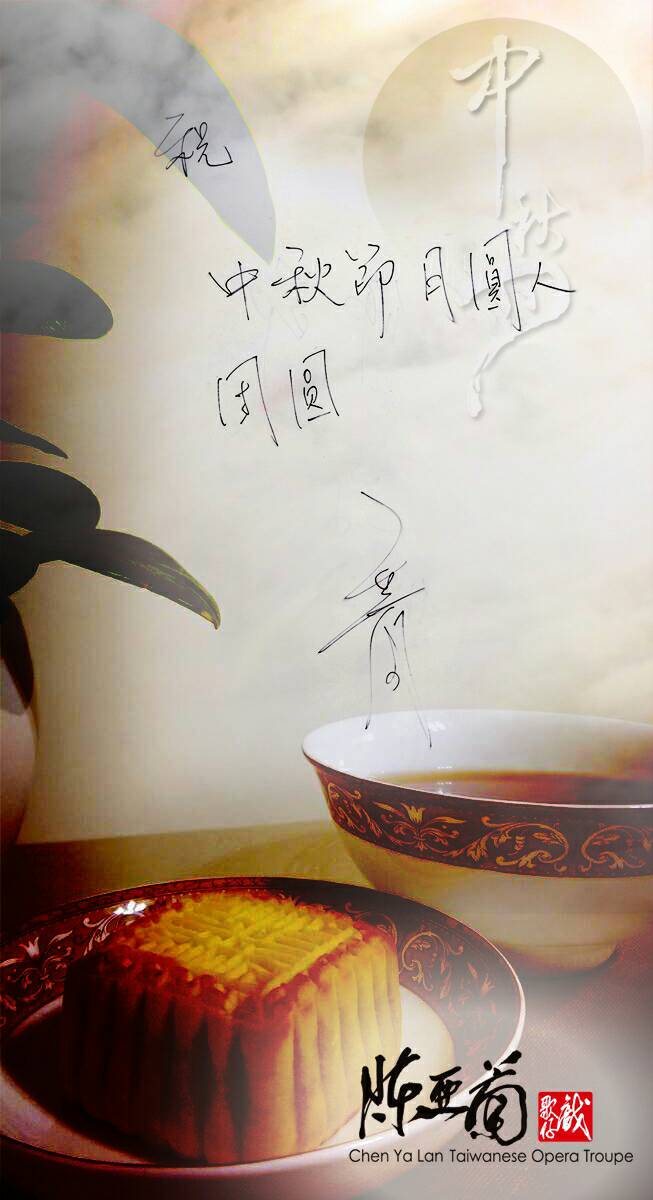 中秋
祝
中秋節月圓人
團圓
陈亚蘭
歌仔戲
Chen Ya Lan Taiwanese Opera Troupe